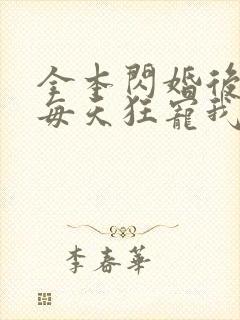 全本閃婚後
每天狂寵我
李春華